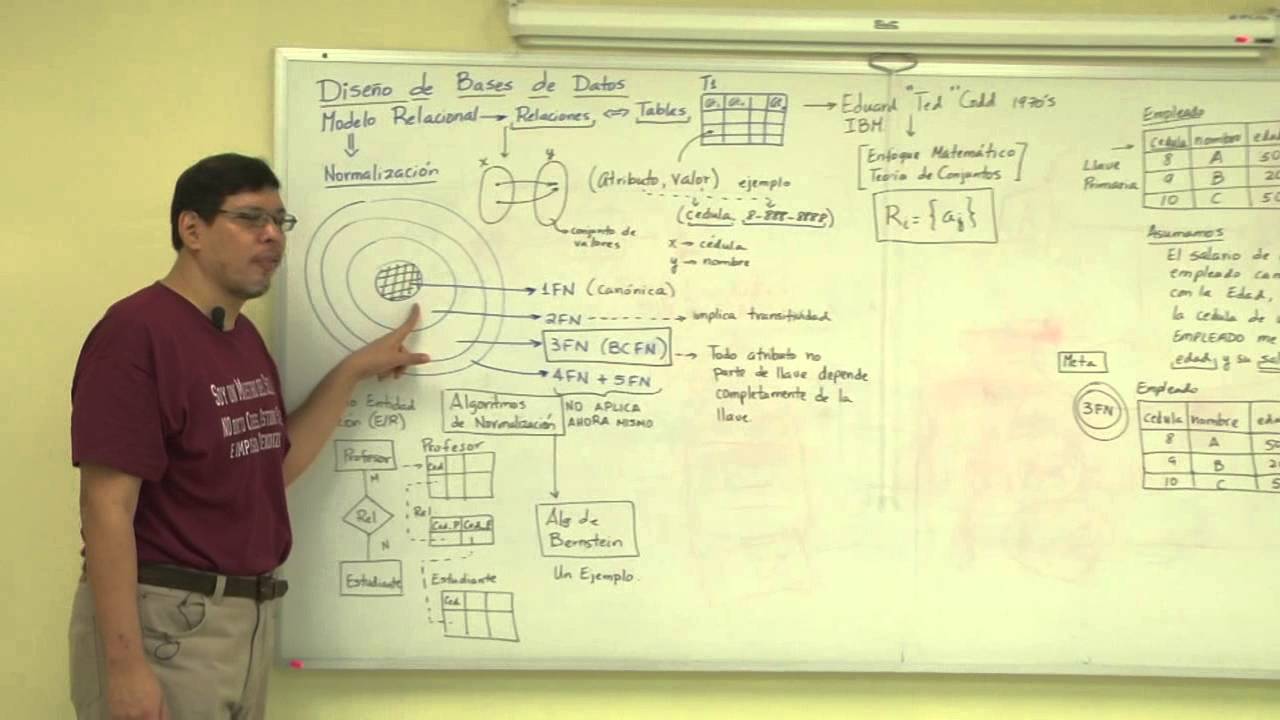 Diseño de Bases de Datos
Modelo Relacional → Relaciones ⇔ Tables
T1
→ Eduard "Ted" Codd 1970's
IBM
Normalización
[Enfoque Matemático
Teoría de Conjuntos]
x y
(Atributo, valor) ejemplo
(cédula, 8-888-8888)
conjunto de
valores
x → cédula
y → nombre
R i = {a j}
1FN (canónica)
2FN → implica transitividad
3FN (BCFN) → Todo atributo no
parte de llave depende
completamente de la
llave.
4FN + 5FN
NO APLICA
AHORA MISMO
Algoritmos
de Normalización
Alg de
Bernstein
Un Ejemplo.
Entidad
(E/R)
Profesor
M
Rel
N
Estudiante
Profesor
Ced
Rel
Ced_P Ced_E
Estudiante
Ced
Empleado
Llave
Primaria
cedula nombre eda
8 A 50
9 B 20
10 C 50
Asumamos
El salario de
empleado cam
con la Edad,
la cedula de
EMPLEADO me
edad y su sa
Meta
3FN
Empleado
cedula nombre eda
8 A 50
9 B 20
10 C 5
SOY UN
NO